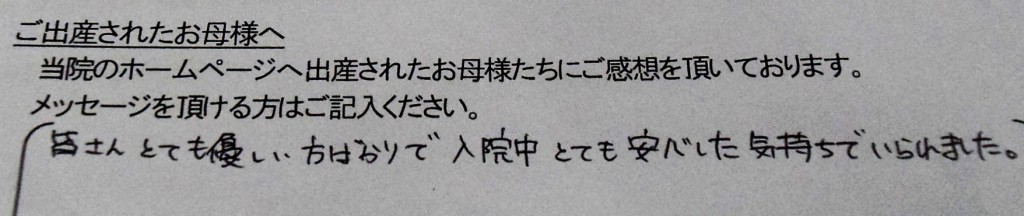 ご出産されたお母様へ
当院のホームページへ出産されたお母様たちにご感想を頂いております。
メッセージを頂ける方はご記入ください。
皆さんとても優しい方ばかりで入院中とても安心した気持ちでいられました。